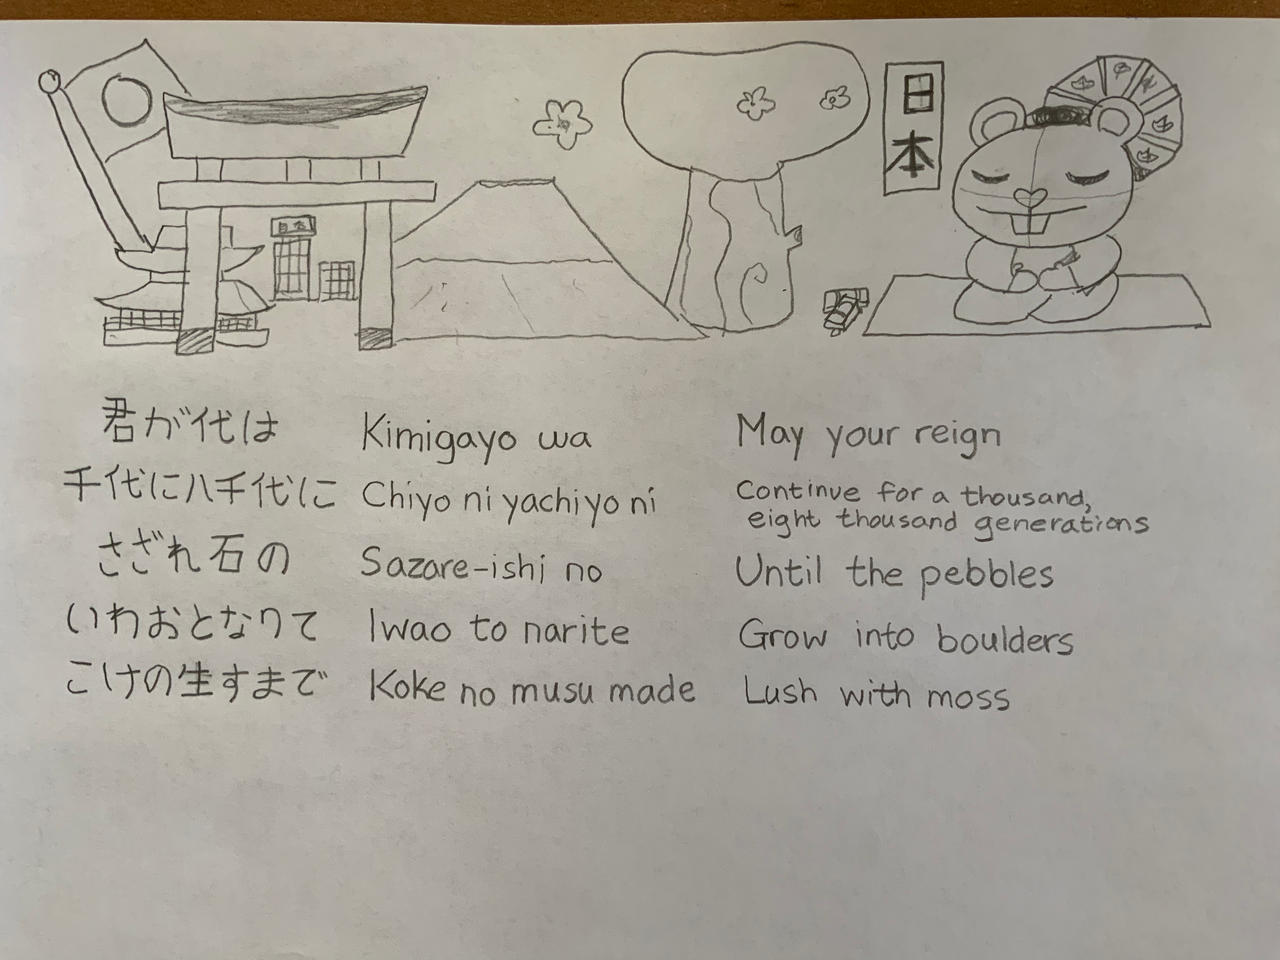 日本
日本
君が代は Kimigayo wa May your reign
千代に八千代に Chiyo ni yachiyo ni Continue for a thousand,
eight thousand generations
さざれ石の Sazare-ishi no Until the pebbles
いわおとなりて Iwao to narite Grow into boulders
こけの生すまで Koke no musu made Lush with moss